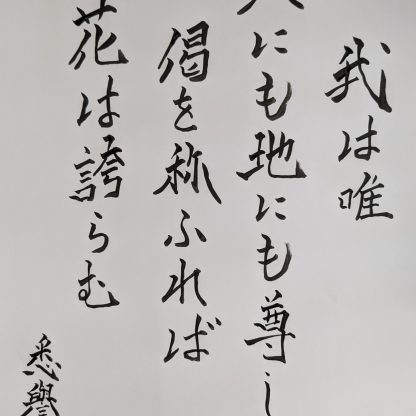 我は唯
天にも地にも尊し
偈を称ふれば
花は誇らむ
悉誉